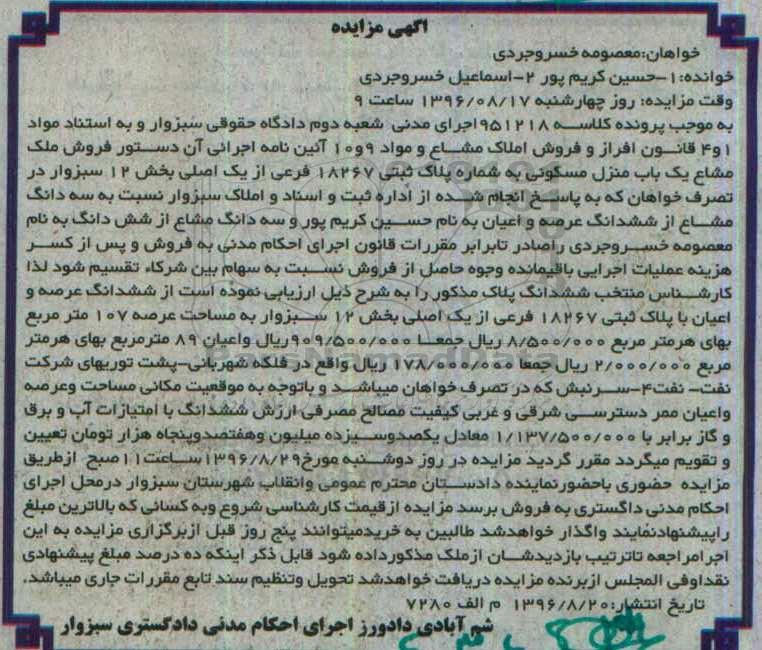 آگهی مزایده
خواهان:معصومه خسروجردی
خوانده:۱-حسین کریم پور ۲-اسماعیل خسروجردی
وقت مزایده: روز چهارشنبه ۱۳۹۶/۰۸/۱۷ ساعت ۹
به موجب پرونده کلاسه ۹۵۱۲۱۸اجرای مدنی شعبه دوم دادگاه حقوقی سبزوار و به استناد مواد
۱و۴ قانون افراز و فروش املاک مشاع و مواد ۹و۱۰ آئین نامه اجرائی آن دستور فروش ملک
مشاع یک باب منزل مسکونی به شماره پلاک ثبتی ۱۸۲۶۷ فرعی از یک اصلی بخش ۱۲ سبزوار در
تصرف خواهان که به پاسخ انجام شده از اداره ثبت و اسناد و املاک سبزوار نسبت به سه دانگ
مشاع از ششدانگ عرصه و اعیان به نام حسین کریم پور و سه دانگ مشاع از شش دانگ به نام
معصومه خسروجردی راصادر تابرابر مقررات قانون اجرای احکام مدنی به فروش و پس از کسر
هزینه عملیات اجرایی باقیمانده وجوه حاصل از فروش نسبت به سهام بین شرکاء تقسیم شود لذا
کارشناس منتخب ششدانگ پلاک مذکور را به شرح ذیل ارزیابی نموده است از ششدانگ عرصه و
اعیان با پلاک ثبتی ۱۸۲۶۷ فرعی از یک اصلی بخش ۱۲ سبزوار به مساحت عرصه ۱۰۷ متر مربع
بهای هرمتر مربع ۸/۵۰۰/۰۰۰ ریال جمعا ۹۰۹/۵۰۰/۰۰۰ریال واعیان ۸۹ مترمربع بهای هرمتر
مربع ۲/۰۰۰/۰۰۰ ریال جمعا ۱۷۸/۰۰۰/۰۰۰ ریال واقع در فلکه شهربانی-پشت توریهای شرکت
نفت- نفت۴-سرنبش که در تصرف خواهان میباشد و باتوجه به موقعیت مکانی مساحت وعرصه
واعیان ممر دسترسی شرقی و غربی کیفیت مصالح مصرفی ارزش ششدانگ با امتیازات آب و برق
و گاز برابر با ۱/۱۳۷/۵۰۰/۰۰۰ معادل یکصدوسیزده میلیون وهفتصدوپنجاه هزار تومان تعیین
و تقویم میگردد مقرر گردید مزایده در روز دوشنبه مورخ۱۳۹۶/۸/۲۹ساعت۱۱صبح ازطریق
مزایده حضوری باحضورنماینده دادستان محترم عمومی وانقلاب شهرستان سبزوار درمحل اجرای
احکام مدنی دادگستری به فروش برسد مزایده ازقیمت کارشناسی شروع وبه کسانی که بالاترین مبلغ
راپیشنهادنمایند واگذار خواهدشد طالبین به خریدمیتوانند پنج روز قبل ازبرگزاری مزایده به این
اجرامراجعه تاترتیب بازدیدشان ازملک مذکورداده شود قابل ذکر اینکه ده درصد مبلغ پیشنهادی
نقداوفی المجلس ازبرنده مزایده دریافت خواهدشد تحویل وتنظیم سند تابع مقررات جاری میباشد.
تاریخ انتشار:۱۳۹۶/۸/۲۰ م الف ۷۲۸۰
شم آبادی دادورز اجرای احکام مدنی دادگستری سبزوار